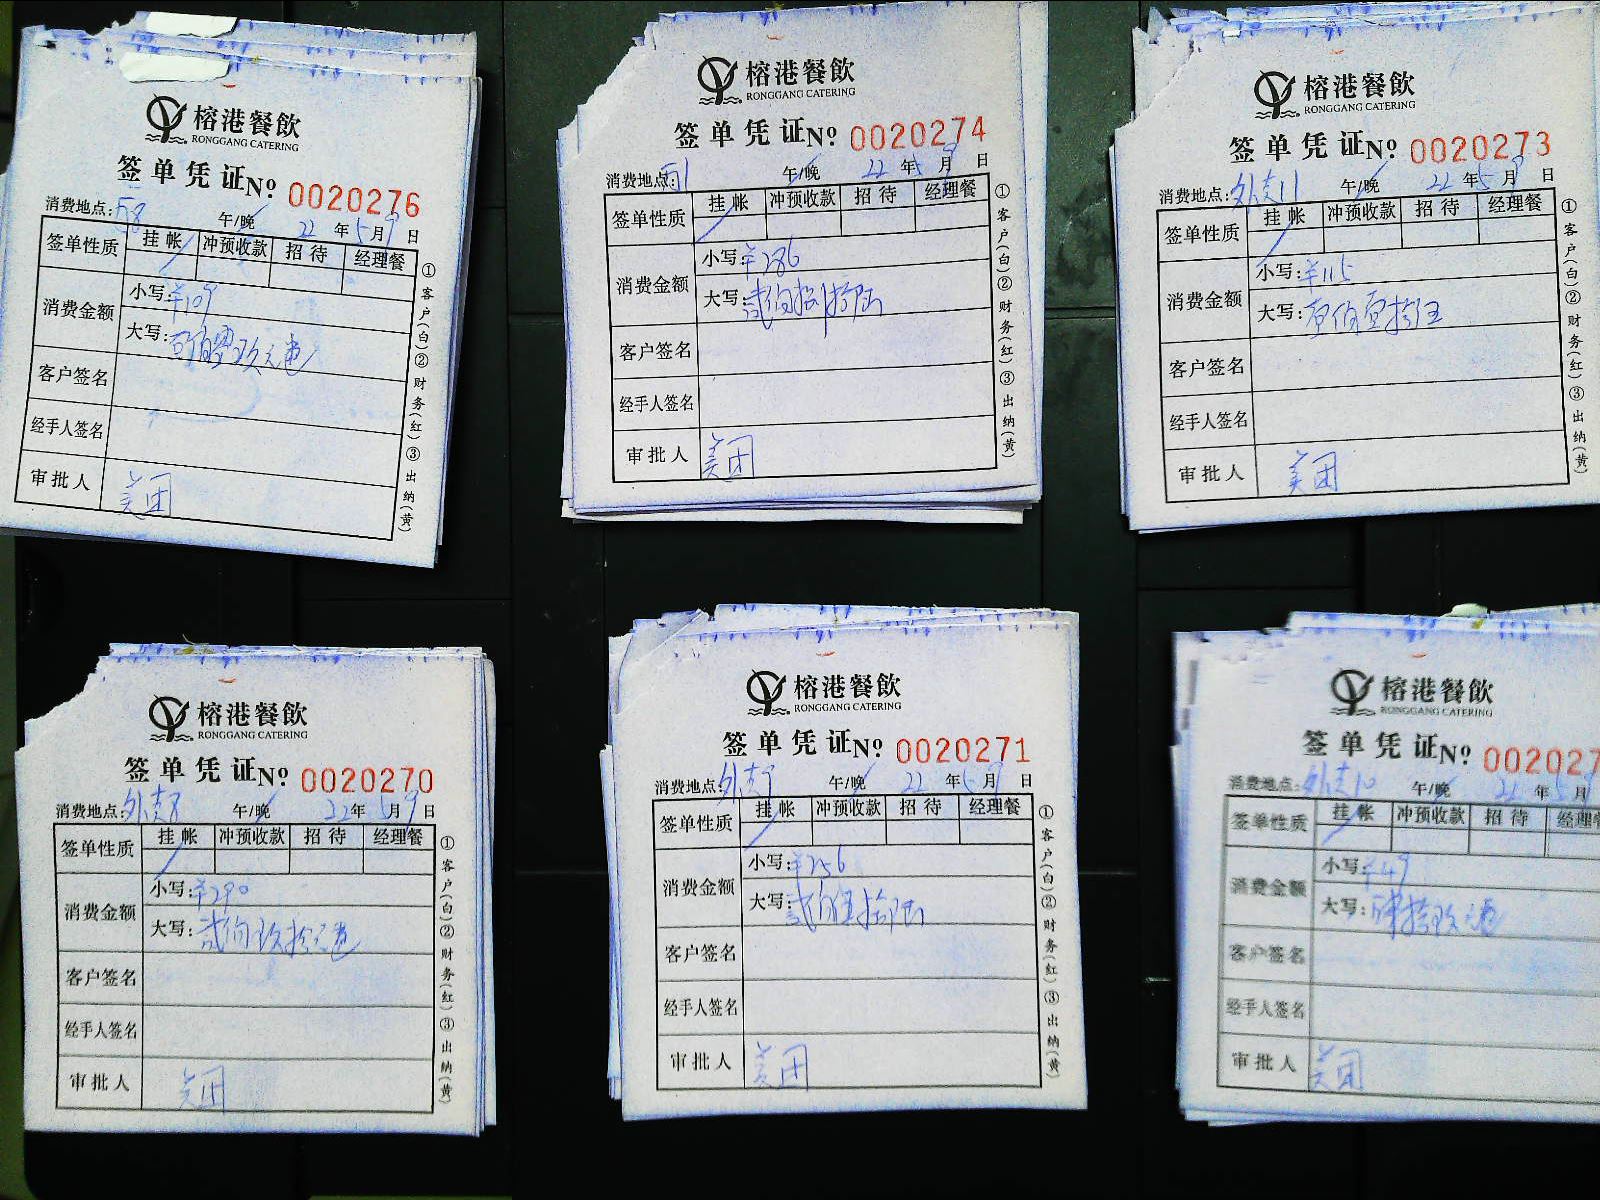 榕港餐飲
RONGGANG CATERING
签单凭证 No 0020276
消费地点: 58 午/晚 22年5月9日
签单性质 挂帐 冲预收款 招待 经理餐
消费金额 小写: ¥109
大写: 壹佰零玖元整
客户签名
经手人签名
审批人 美团
①客户(白)②财务(红)③出纳(黄)
榕港餐飲
RONGGANG CATERING
签单凭证 No 0020274
消费地点: 午/晚 22年5月9日
签单性质 挂帐 冲预收款 招待 经理餐
消费金额 小写: ¥286
大写: 贰佰捌拾陆
客户签名
经手人签名
审批人 美团
①客户(白)②财务(红)③出纳(黄)
榕港餐飲
RONGGANG CATERING
签单凭证 No 0020273
消费地点: 外卖11 午/晚 22年5月9日
签单性质 挂帐 冲预收款 招待 经理餐
消费金额 小写: ¥115
大写: 壹佰壹拾伍
客户签名
经手人签名
审批人 美团
①客户(白)②财务(红)③出纳(黄)
榕港餐飲
RONGGANG CATERING
签单凭证 No 0020270
消费地点: 外卖8 午/晚 22年5月9日
签单性质 挂帐 冲预收款 招待 经理餐
消费金额 小写: ¥290
大写: 贰佰玖拾元整
客户签名
经手人签名
审批人 美团
①客户(白)②财务(红)③出纳(黄)
榕港餐飲
RONGGANG CATERING
签单凭证 No 0020271
消费地点: 外卖9 午/晚 22年5月9日
签单性质 挂帐 冲预收款 招待 经理餐
消费金额 小写: ¥256
大写: 贰佰伍拾陆
客户签名
经手人签名
审批人 美团
①客户(白)②财务(红)③出纳(黄)
榕港餐飲
RONGGANG CATERING
签单凭证 No 002027
消费地点: 外卖10 午/晚 22年5月9
签单性质 挂帐 冲预收款 招待 经理
消费金额 小写: ¥49
大写: 肆拾玖元整
客户签名
经手人签名
审批人 美团